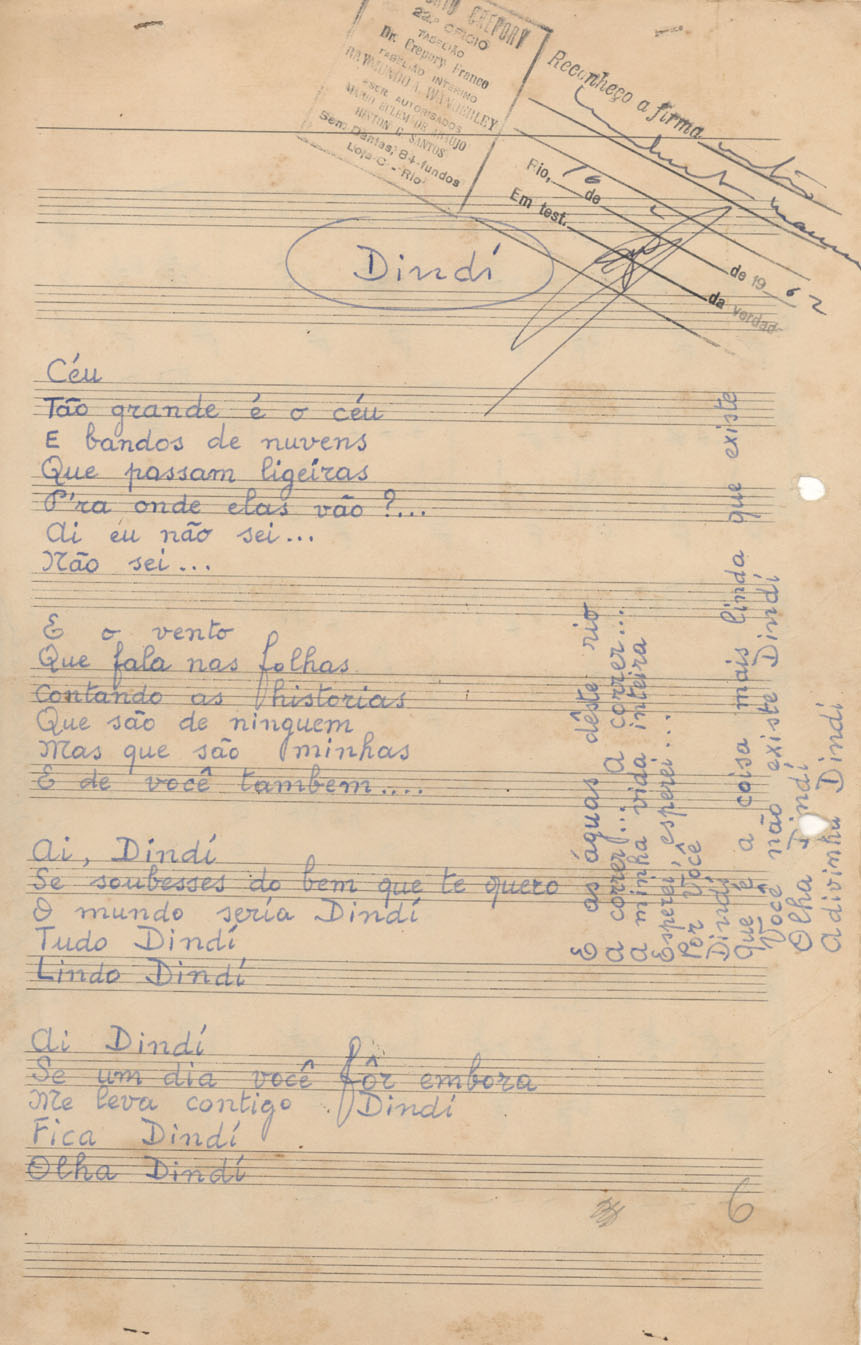 CREPORY
22.º OFICIO
TABELIÃO
Dr. Crepory Franco
TABELIÃO INTERINO
RAYMUNDO A. WANDERLEY
ESCR. AUTORISADOS
ARAUJO
NEWTON C. SANTOS
Sen. Dantas, 84-fundos
Loja C - Rio
Reconheço a firma
Rio, 16 de 2 de 1962
Em test. da verdad
Dindí
Céu
Tão grande é o céu
E bandos de nuvens
Que passam ligeiras
P'ra onde elas vão ?...
Ai eu não sei...
Não sei...
E o vento
Que fala nas folhas
Contando as historias
Que são de ninguem
Mas que são minhas
E de você tambem....
Ai, Dindí
Se soubesses do bem que te quero
O mundo seria Dindí
Tudo Dindí
Lindo Dindí
Ai Dindí
Se um dia você fôr embora
Me leva contigo Dindí
Fica Dindí
Olha Dindí
E as águas dêste rio
A correr... a correr...
A minha vida inteira
Esperei, esperei...
Por Você
Dindí
Que é a coisa mais linda que existe
Você não existe Dindí
Olha Dindí
Adivinha Dindí
6